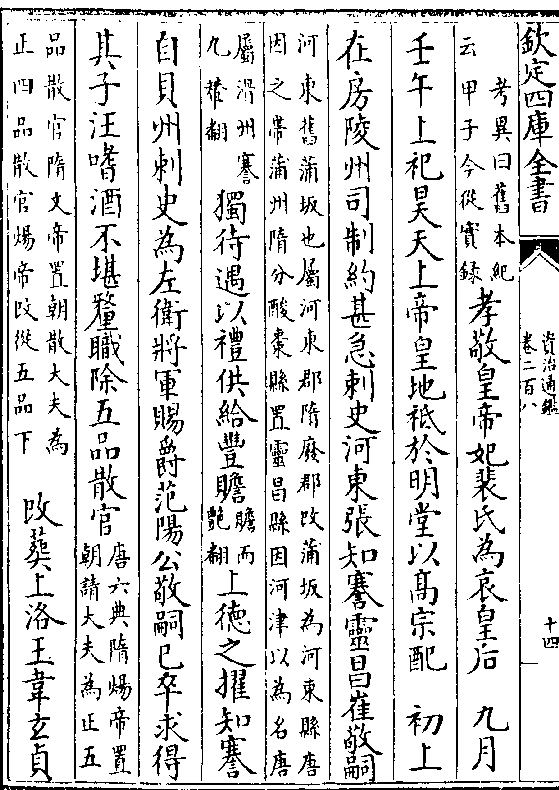 欽定四庫全書
資治通鑑
卷二百八
十四
考異曰舊本紀
云甲子今從實錄
孝敬皇帝妃裴氏為哀皇后 九月
壬午上祀昊天上帝皇地祇於明堂以高宗配 初上
在房陵州司制約甚急刺史河東張知謇靈昌崔敬嗣
河東舊蒲坂也屬河東郡隋廢郡改蒲坂為河東縣唐
因之帶蒲州隋分酸棗縣置靈昌縣因河津以為名唐
屬滑州謇
九輦翻
獨待遇以禮供給豐贍
贍而
豔翻
上德之擢知謇
自貝州刺史為左衛將軍賜爵范陽公敬嗣已卒求得
其子汪嗜酒不堪釐職除五品散官
唐六典隋煬帝置
朝請大夫為正五
品散官隋文帝置朝散大夫為
正四品散官煬帝改從五品下
改葬上洛王韋玄貞